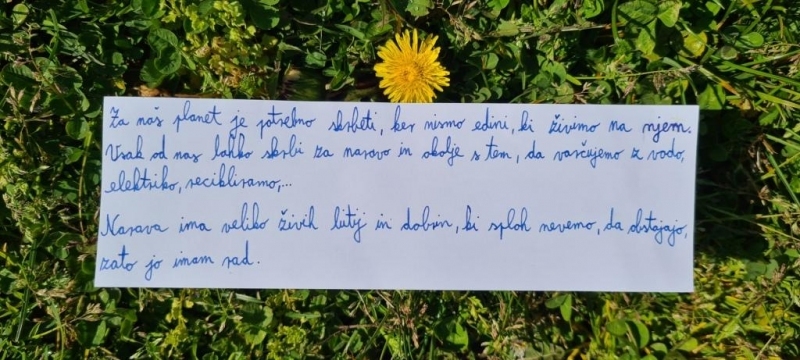 Za naš planet je potrebno skrbeti, ker nismo edini, ki živimo na njem.
Vsak od nas lahko skrbi za naravo in okolje s tem, da varčujemo z vodo,
elektriko, recikliramo,...
Narava ima veliko živih bitij in dobrin, ki sploh nevemo, da obstajajo,
zato jo imam rad.